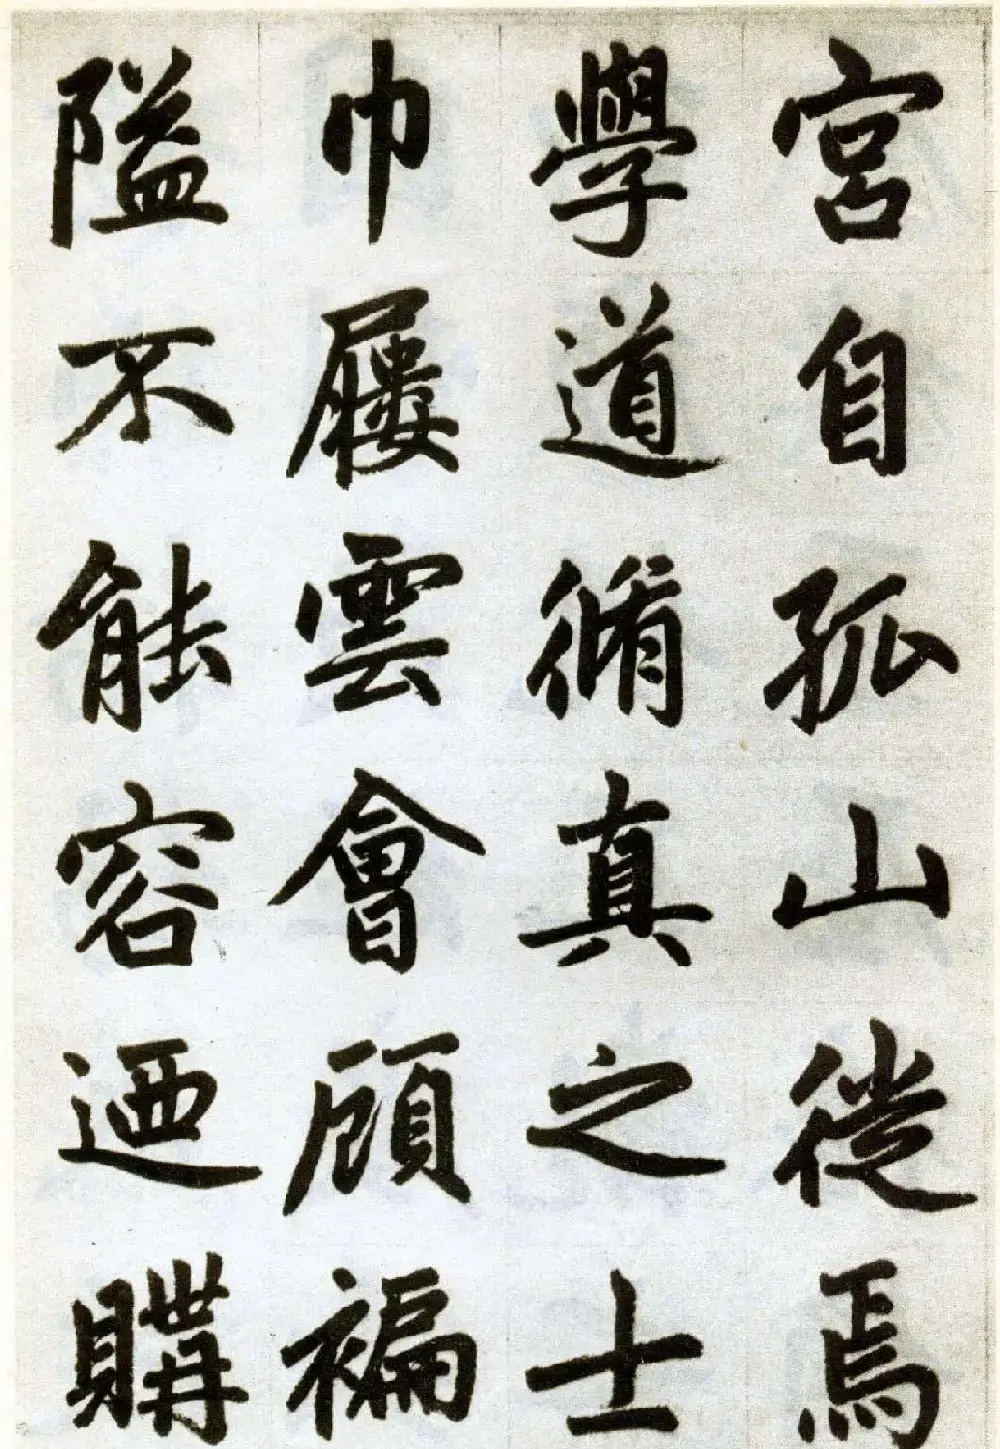 宫自孤山徙焉
學道脩真之士
巾屨雲會顧褊
隘不能容迺購